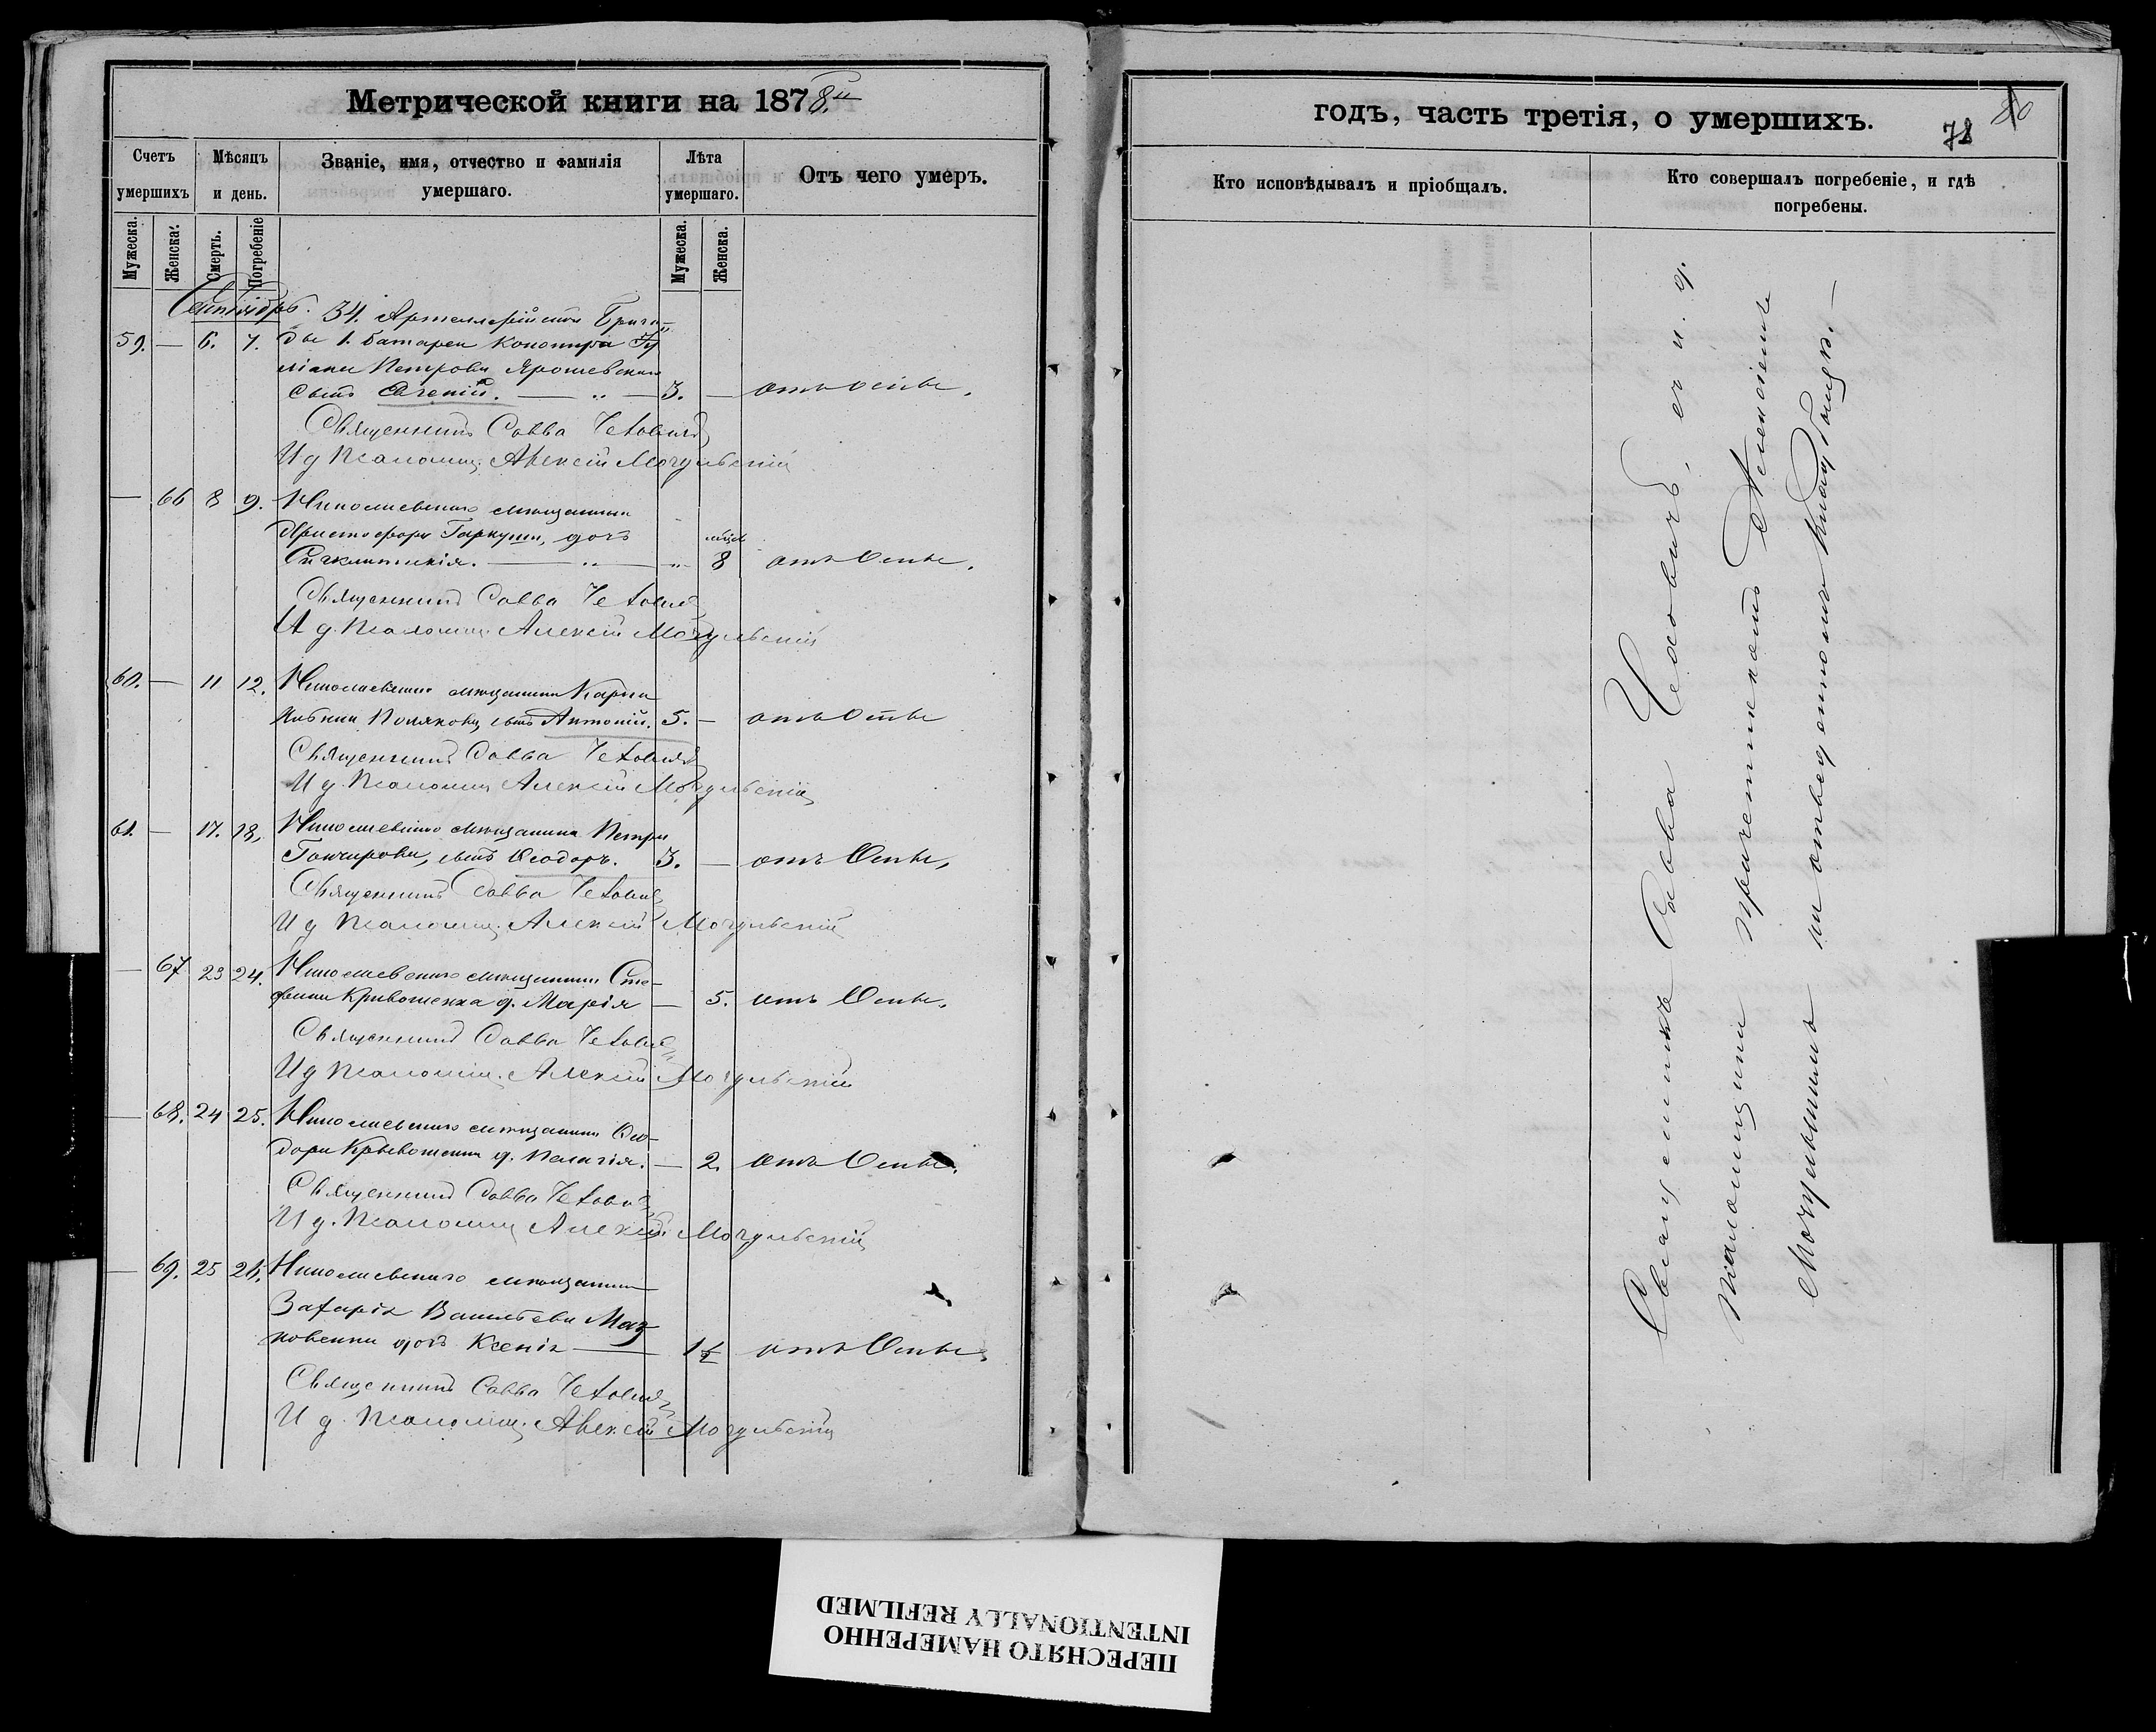 Метрической книги на 1878.й
Счетъ умершихъ
Мѣсяцъ и день.
Званіе, имя, отчество и фамилія умершаго.
Лѣта умершаго.
Отъ чего умеръ.
Мужеска.
Женска.
Смерть.
Погребеніе
Мужеска.
Женска.
Сентябрь. 34. Артиллерійской Брига-
59. — 6. 7. ды 1. батареи
Петрова Ярошевскаго
сынъ 3. — отъ оспы.
Священникъ Савва Чеховичъ
И д Псаломщ. Алексій Могульскій
— 66 8 9. Николаевскаго мѣщанина
Христофора Гаркуши, дочь
мѣсяц.
Синклитикія. — „ — „ 8 отъ Оспы.
Священникъ Савва Чеховичъ
И д. Псаломщ. Алексій Могульскій
60. — 11 12. Николаевскаго мѣщанина Карпа
Полякова, сынъ Антоній. 5. — отъ Оспы
Священникъ Савва Чеховичъ
И д. Псаломщ Алексій Могульскій
61. — 17. 18. Николаевскаго мѣщанина Петра
Гончарова, сынъ Ѳеодоръ. 3. — отъ Оспы,
Священникъ Савва Чеховичъ
И д Псаломщ. Алексій Могульскій
— 67 23 24. Николаевскаго мѣщанина Сте-
фана Кривошенка д. Марія — 5. отъ Оспы.
Священникъ Савва Чеховичъ
И д Псаломщ. Алексій Могульскій
— 68. 24 25. Николаевскаго мѣщанина Ѳео-
дора д. Пелагія. — 2. отъ Оспы.
Священникъ Савва Чеховичъ
И д. Псаломщ Алексій Могульскій
— 69. 25 26. Николаевскаго мѣщанина
Захарія Васильева Маз
новенки дочь Ксенія — 1½ отъ Оспы.
Священникъ Савва Чеховичъ
И д. Псаломщ. Алексій Могульскій
годъ, часть третія, о умершихъ.
78
80
Кто исповѣдывалъ и пріобщалъ.
Кто совершалъ погребеніе, и гдѣ погребены.
Священникъ Савва Чеховичъ, съ и. д.
псаломщика причетникомъ Алексіемъ
Могульскимъ на отведенномъ кладбищѣ.—
ПЕРЕСНЯТО НАМЕРЕННО
INTENTIONALLY REFILMED